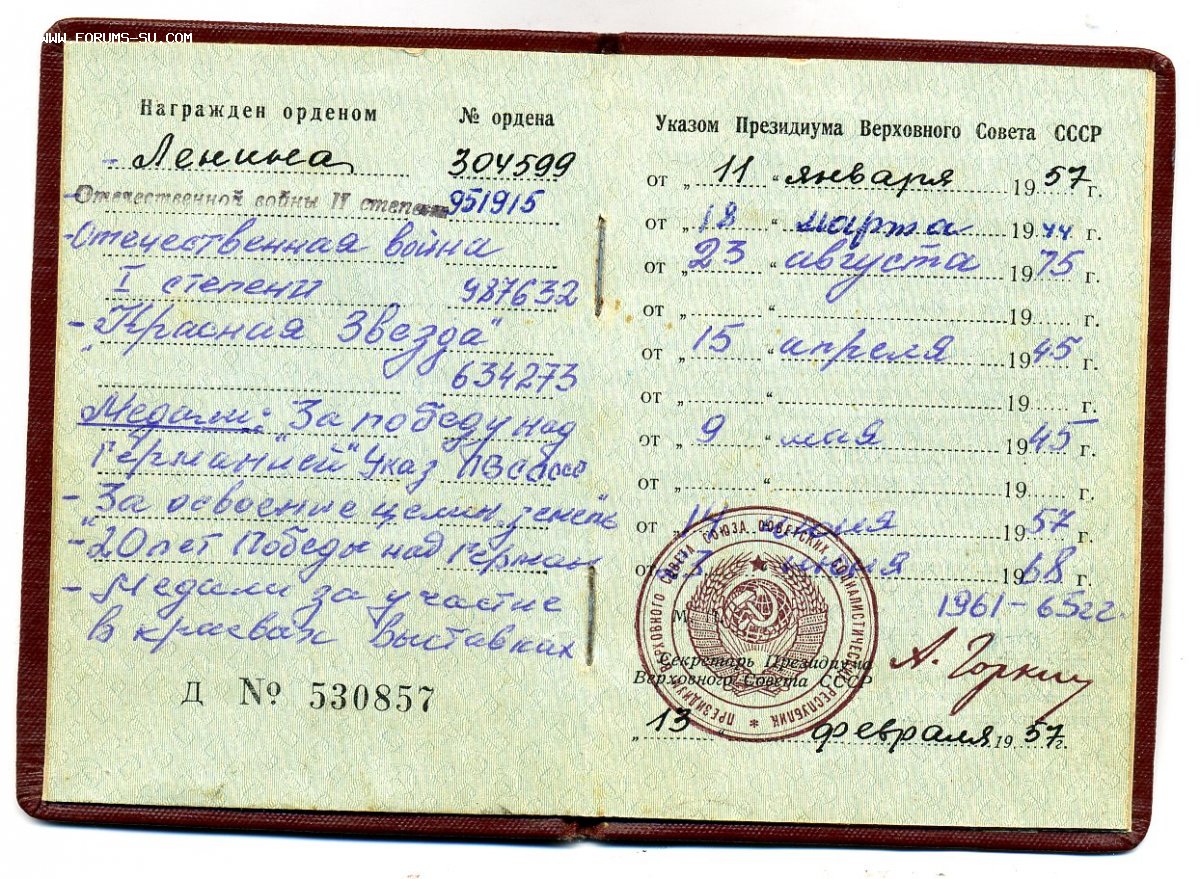 WWW.FORUMS-SU.COM
Награжден орденом № ордена
- Ленина 304599
- Отечественной войны II степени 951915
- Отечественная война
I степени 987632
- "Красная Звезда"
634273
Медали: "За победу над
Германией" Указ ПВС СССР
- За освоение целин. земель"
- "20 лет Победы над Герман
- Медали за участие
в краевых выставках
Д № 530857
Указом Президиума Верховного Совета СССР
от „ 11 “ января 1957 г.
от „ 18 “ марта 1944 г.
от „ 23 “ августа 1975 г.
от „ “ 19 г.
от „ 15 “ апреля 1945 г.
от „ “ 19 г.
от „ 9 “ мая 1945 г.
от „ “ 19 г.
от „ “ 1957 г.
от „ “ 1968 г.
1961-65 гг.
М. П.
ПРЕЗИДИУМ ВЕРХОВНОГО СОВЕТА СОЮЗА СОВЕТСКИХ СОЦИАЛИСТИЧЕСКИХ РЕСПУБЛИК
Секретарь Президиума
Верховного Совета СССР
А. Горкин
„ 13 “ февраля 1957 г.